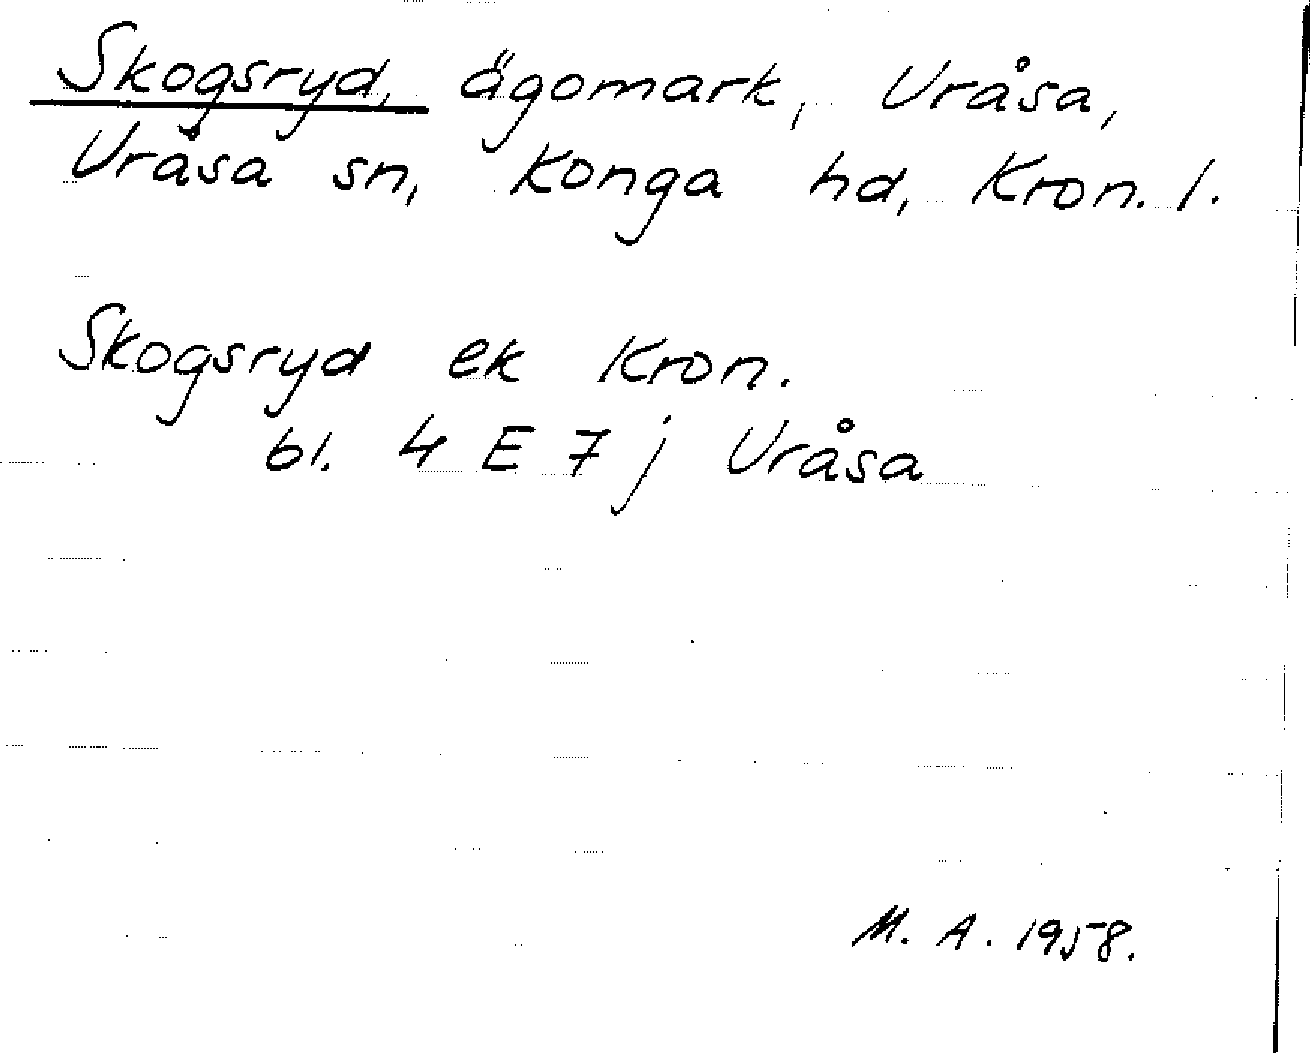 Skogsryd, ägomark, Uråsa,
Uråsa sn, Konga hd, Kron. l.
Skogsryd ek Kron.
bl. 4 E 7 j Uråsa
M. A. 1958.